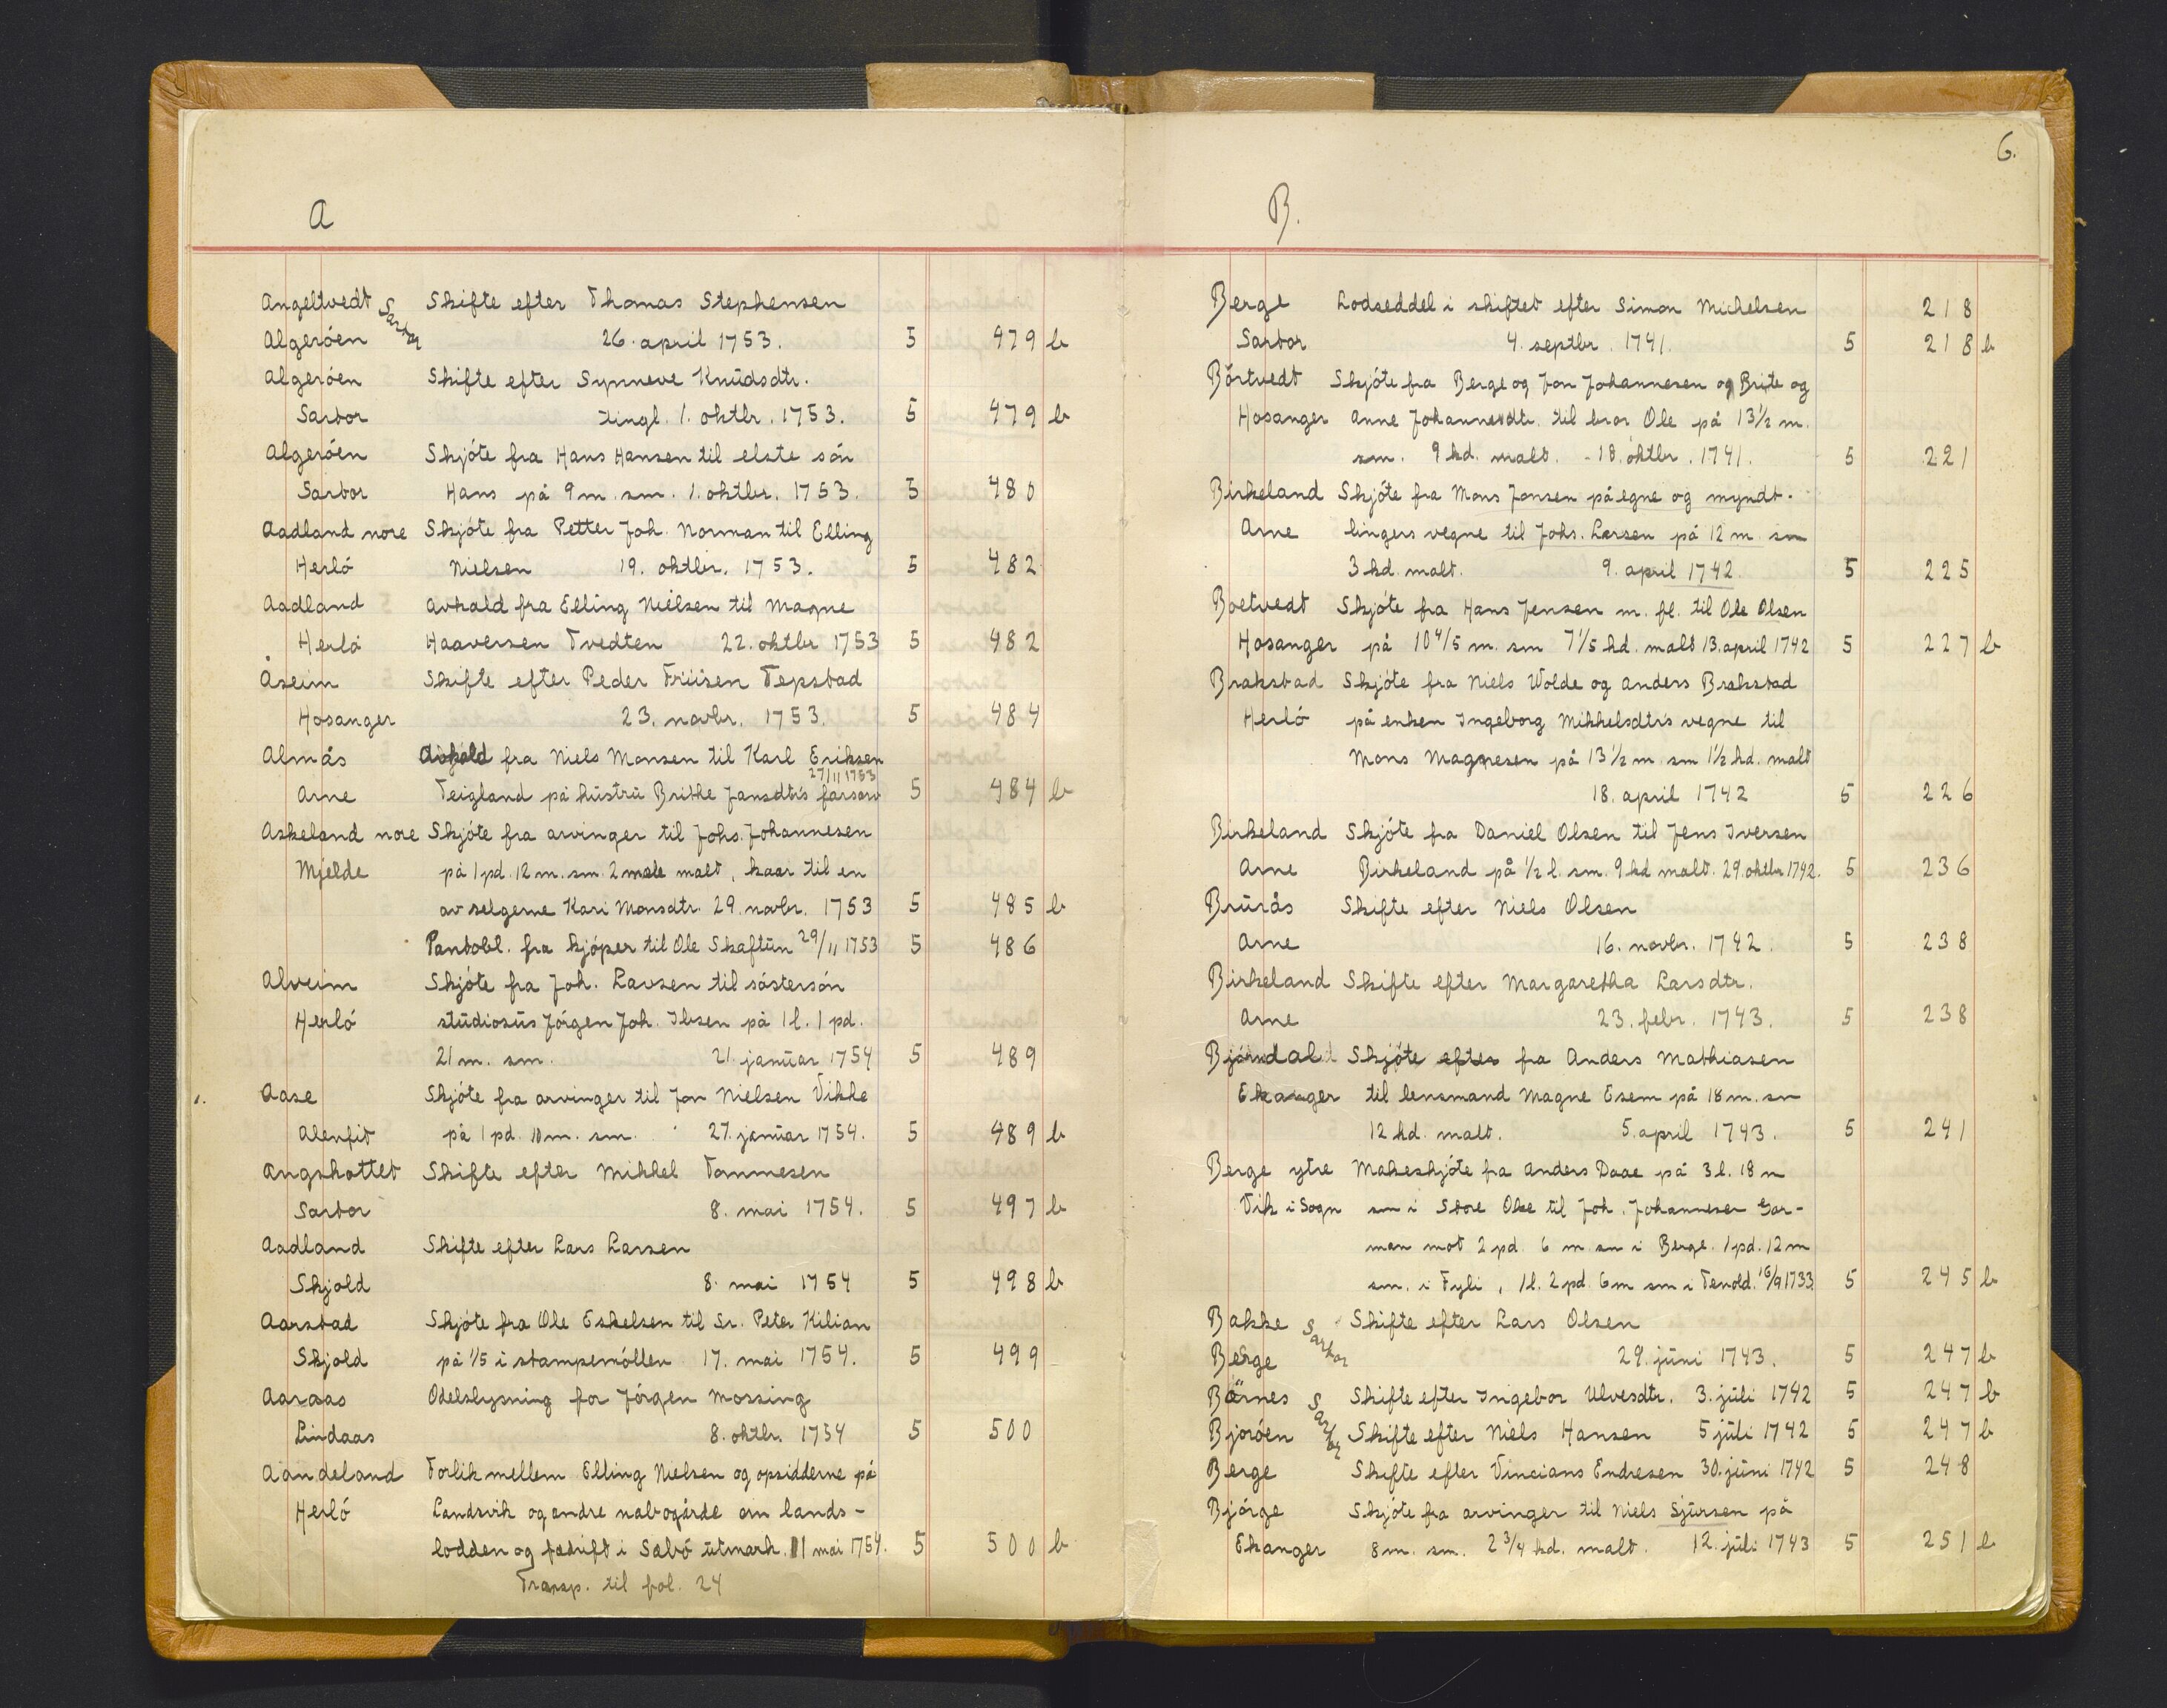 A
Angeltvedt Sartor Skifte efter Thomas Stephensen
Algeröen 26. april 1753. 5 479 b
Algeröen Skifte efter Synneve Knudsdtr.
Sartor tingl. 1. oktbr. 1753. 5 479 b
Algeröen Skjöte fra Hans Hansen til elste sön
Sartor Hans på 9 m. sm. 1. oktbr. 1753. 5 480
Aadland nore Skjöte fra Petter Joh. Norman til Elling
Herlö Nielsen 19. oktbr. 1753. 5 482
Aadland Avkald fra Elling Nielsen til Magne
Herlö Haaversen Tvedten 22. oktbr 1753 5 482
Åseim Skifte efter Peder Friisen Tepstad
Hosanger 23. novbr. 1753. 5 484
Almås Avkald fra Niels Monsen til Karl Eriksen
27/11 1753
Arne Teigland på hustru Brithe Jansdtrs farsarv 5 484 b
Askeland nore Skjöte fra arvinger til Johs. Johannesen
Mjelde på 1 pd. 12 m. sm. 2 mele malt, kaar til en
av selgerne Kari Monsdtr. 29. novbr. 1753 5 485 b
Pantobl. fra kjöper til Ole Skaftun 29/11 1753 5 486
Alveim Skjöte fra Joh. Lavsen til söstersön
Herlö studiosus Jörgen Joh. Ibsen på 1 l. 1 pd.
21 m. sm. 21. januar 1754 5 489
1. Aase Skjöte fra arvinger til Jon Nielsen Vikke
Alenfit på 1 pd. 10 m. sm. 27. januar 1754. 5 489 b
Angskottet Skifte efter Mikkel Tommesen
Sartor 8. mai 1754. 5 497 b
Aadland Skifte efter Lars Larsen
Skjold 8. mai 1754 5 498 b
Aarstad Skjöte fra Ole Eskelsen til Sr. Peter Kilian
Skjold på 1/5 i stampemöllen 17. mai 1754. 5 499
Aaraas Odelslysning for Jörgen Mossing
Lindaas 8. oktbr. 1754 5 500
Aandeland Forlik mellem Elling Nielsen og opsidderne på
Herlö Landsvik og andre nabogårde om lands-
lodden og fedrift i Sæbö utmark. 11 mai 1754. 5 500 b
Transp. til fol. 24
6.
B.
Berge Lodseddel i skiftet efter Simon Michelsen 218
Sartor 4. septbr. 1741. 5 218 b
Börtvedt Skjöte fra Berge og Jon Johannesen og Brite og
Hosanger Anne Johannesdtr. til bror Ole på 13 1/2 m.
sm. 9 kd. malt. - 18. oktbr. 1741. 5 221
Birkeland Skjöte fra Mons Jonsen på egne og myndt.
Arne lingers vegne til Johs. Larsen på 12 m. sm
3 kd. malt. 9. april 1742. 5 225
Boetvedt Skjöte fra Hans Jensen m. fl. til Ole Olsen
Hosanger på 10 4/5 m. sm 7 1/5 kd. malt 13. april 1742 5 227 b
Brakstad Skjöte fra Niels Wolde og Anders Brakstad
Herlö på enken Ingeborg Mikkelsdtrs vegne til
Mons Magnesen på 13 1/2 m sm 1 1/2 kd. malt
18. april 1742 5 226
Birkeland Skjöte fra Daniel Olsen til Jens Iversen
Arne Birkeland på 1/2 l. sm. 9 kd malt. 29. oktbr 1742. 5 236
Brurås Skifte efter Niels Olsen
Arne 16. novbr. 1742. 5 238
Birkeland Skifte efter Margaretha Larsdtr.
Arne 23. febr. 1743. 5 238
Björndal Skjöte efter fra Anders Mathiasen
Ekanger til lensmand Magne Esem på 18 m. sm
12 kd. malt. 5. april 1743. 5 241
Berge ytre Makeskjöte fra Anders Daae på 3 l. 18 m
Vik i Sogn sm i Store Olse til Joh. Johannesen Gar-
man mot 2 pd. 6 m sm i Berge. 1 pd. 12 m
sm. i Fyli, 1 l. 2 pd. 6 m sm i Tenold. 16/9 1733 5 245 b
Bakke Sartor Skifte efter Lars Olsen
Berge 29. juni 1743. 5 247 b
Bærnes Sartor Skifte efter Ingebor Ulvesdtr. 3. juli 1742 5 247 b
Bjoröen Skifte efter Niels Hansen 5 juli 1742 5 247 b
Berge Skifte efter Vincians Endresen 30. juni 1742 5 248
Bjørge Skjöte fra arvinger til Niels Sjursen på
Ekanger 8 m. sm. 2 3/4 kd. malt. 12. juli 1743 5 251 b